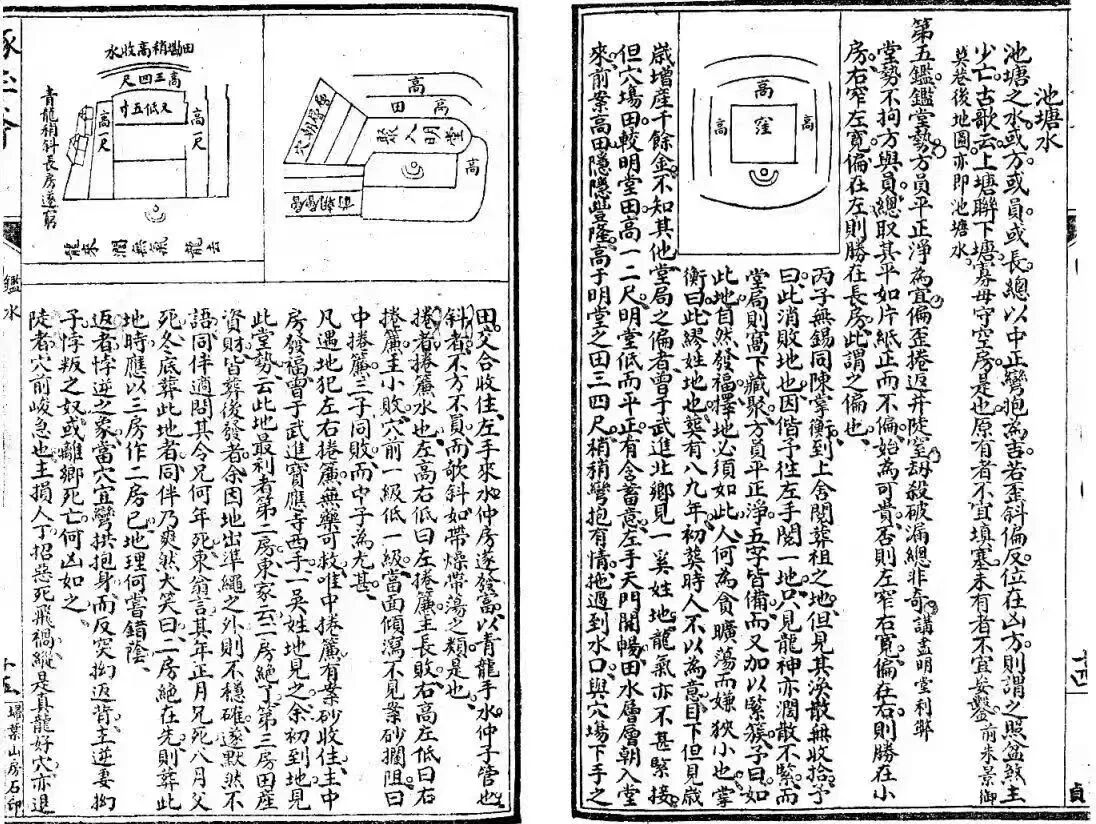 池塘水
池塘之水或方或員或長總以中正彎抱為吉若歪斜偏反位在凶方則謂之照盆煞主
少亡古歌云上塘聯下塘寡母守空房是也原有者不宜填塞未有者不宜妄鑿前朱景御
莫巷後地圖亦即池塘水
第五鑑鑑堂勢方員平正淨為宜偏歪捲返并陡窒刼殺破漏總非奇講盡明堂利弊
堂勢不拘方與員總取其平如片紙正而不偏始為可貴否則左窄右寬偏在右則勝在小
房右窄左寬偏在左則勝在長房此謂之偏也
萬
高
窪
高
丙子無錫同陳掌衡到上舍閱葬祖之地但見其渙散無收拾予
曰此消敗地也因偕予徃左手閱一地只見龍神亦濶散不緊而
堂局則窩下藏聚方員平正淨五字皆備而又加以緊簇予曰如
此地自然發福擇地必須如此人何為貪曠蕩而嫌狹小也掌
衡曰此繆姓地也葬有八九年初葬時人不以為意目下但見歲
歲增産千餘金不知其他堂局之偏者曾于武進北鄉見一奚姓地龍氣亦不甚緊接
但穴塲田較明堂田高一二尺明堂低而平正有含蓄意左手天門開暢田水層層朝入堂
來前案高田隱隱豐隆高于明堂之田三四尺稍稍彎抱有情拖過到水口與穴塲下手之
貞
高
田
高
聚入明堂
高
田塍稍高收水
高三四尺
又低五寸
高一尺
高一尺
青龍稍斜長房遂窮
吉龍氣旺濶來龍
田交合收住左手來水仲房遂發富以青龍手水仲子管也
斜者不方不員而欹斜如帶燥帶蕩之類是也
捲者捲簾水也左高右低曰左捲簾主長敗右高左低曰右
捲簾主小敗穴前一級低一級當面傾瀉不見案砂攔阻曰
中捲簾三子同敗而中子為尤甚
凡遇地犯左右捲簾無藥可救唯中捲簾有案砂收住主中
房發福曾于武進寶應寺西手一吳姓地見之余初到地見
此堂勢云此地最利者第二房東家云二房絕了第三房田産
資財皆葬後發者余因地出準繩之外則不穩確遂默然不
語同伴適問其令兄何年死東翁言其年正月兄死八月父
死冬底葬此地者同伴乃爽然大笑曰二房絕在先則葬此
地時應以三房作二房巳地理何嘗錯陰
返者悖逆之象當穴宜彎拱抱身而反突拗返背主逆妻拗
子悖叛之奴或離鄉死亡何凶如之
陡者穴前峻急也主損人丁招惡死飛禍縱是真龍好穴亦退
鑑水
埽葉山房石印